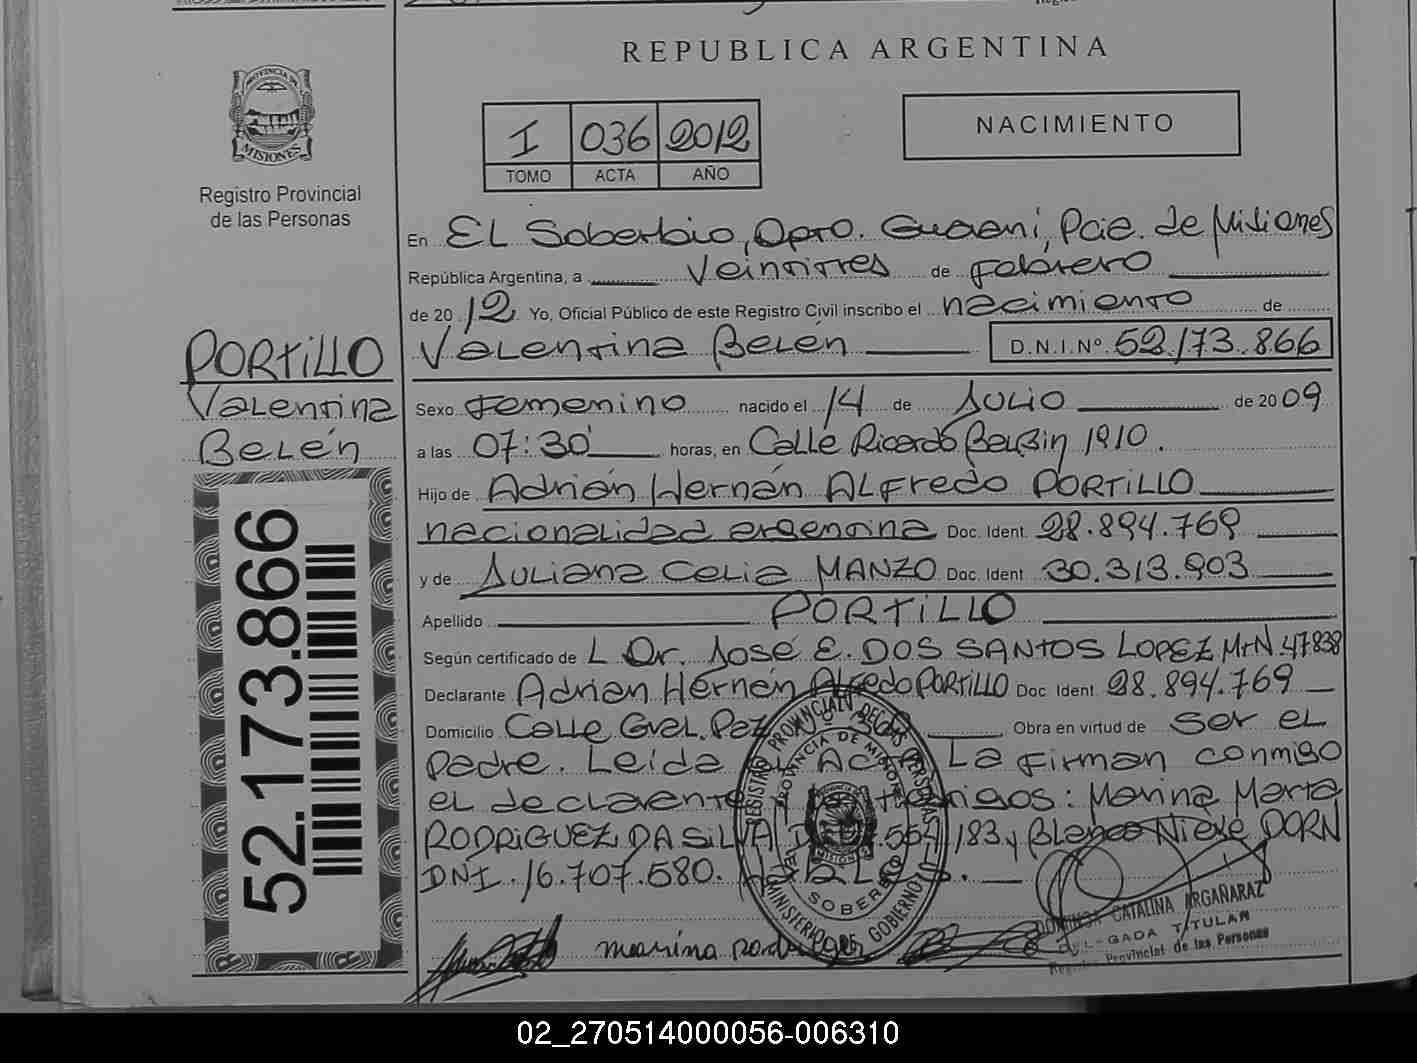 REPUBLICA ARGENTINA
PROVINCIA DE
MISIONES
Registro Provincial
de las Personas
I 036 2012
TOMO ACTA AÑO
NACIMIENTO
En EL Soberbio, Dpto. Guaraní, Pcia. de Misiones
República Argentina, a veintitres de Febrero
de 2012 Yo, Oficial Público de este Registro Civil inscribo el nacimiento de
Valentina Belén D.N.I.Nº 52.173.866
PORTiLLO
Valentina
Belén
Sexo Femenino nacido el 14 de Julio de 2009
a las 07:30' horas, en Calle Ricardo Balbin 1910.
Hijo de Adrián Hernán ALFredo PORTiLLO
nacionalidad argentina Doc. Ident. 28.894.769
y de Juliana Celia MANZO Doc. Ident. 30.313.903
Apellido PORTiLLO
Según certificado de L Dr. José E. DOS SANTOS LOPEZ MtN. 47838
Declarante Adrián Hernán Alfredo PORTiLLO Doc. Ident. 28.894.769
Domicilio Calle Gral. Paz Obra en virtud de ser el
padre. Leída el Acta La firman conmigo
el declarante y los testigos: Marina Marta
RODRiGUEZ DA SiLVA 183 y Blanca Nieve DORN
DNI. 16.707.580.
52.173.866
REGISTRO PROVINCIAL DE LAS PERSONAS
PROVINCIA DE MISIONES
MISIONES
SOBERBIO
MINISTERIO DE GOBIERNO
marina rodriguez
DOMINGA CATALINA ARGAÑARAZ
DELEGADA TITULAR
Registro Provincial de las Personas
02_270514000056-006310